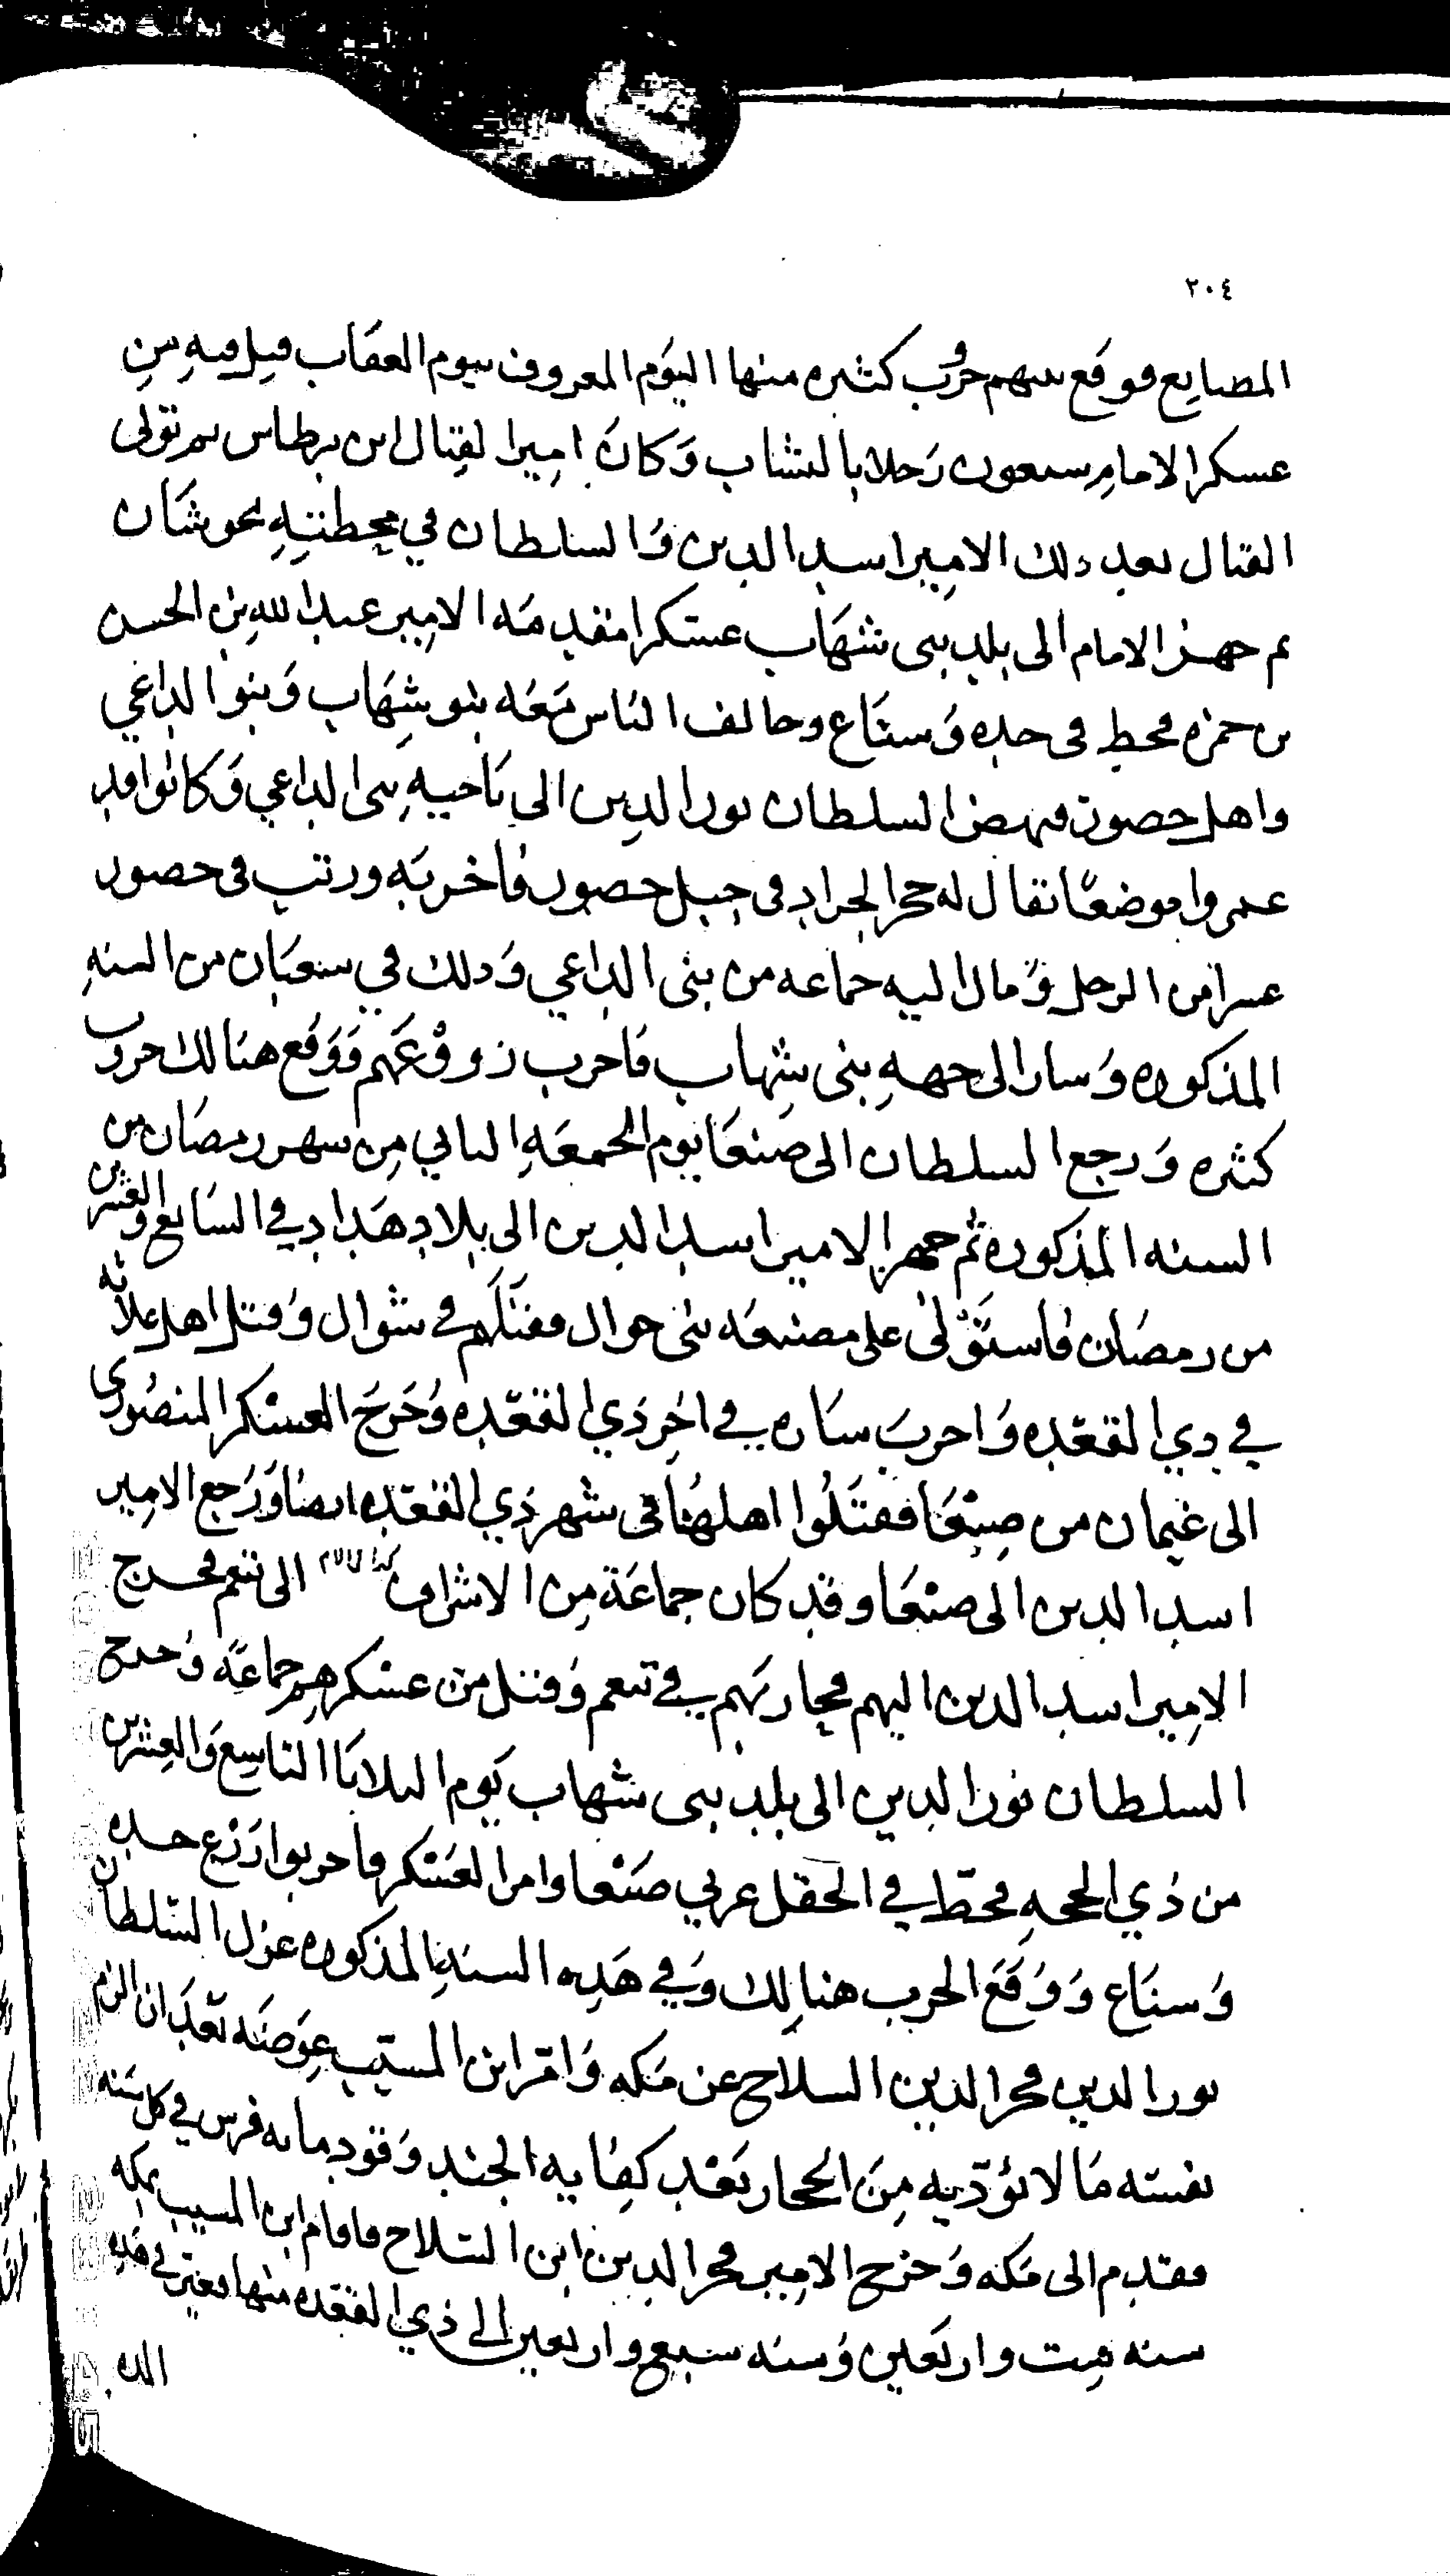 ٢٠٤
المصانع فوقع بينهم حروب كثيره منها اليوم المعروف بيوم العقاب قيل فيه من
عسكر الامام سبعون رجلا بالنشاب وكان اميرا لقتال ابن برطاس ثم تولى
القتال بعد ذلك الامير اسد الدين والسلطان في محطته بحوشان
ثم جهز الامام الى بلد بني شهاب عسكرا مقدمه الامير عبد الله بن الحسن
بن حمزه فحط في حده وسناع وحالف الناس معه بنو شهاب وبنو الداعي
واهل حضور فنهض السلطان نور الدين الى ناحيه بني الداعي وكانوا قد
عمروا موضعا يقال له حجر الجراد في جبل حضور فاخربه ورتب في حضور
من الرجل ومال اليه جماعه من بني الداعي وذلك في شعبان من السنه
المذكوره وسار الى جهه بني شهاب فاخرب زروعهم ووقع هنالك حروب
كثره ورجع السلطان الى صنعا يوم الجمعه الثاني من شهر رمضان من
السنه المذكوره ثم جهز الامير اسد الدين الى بلاد هداد في السابع والعشرين
من رمضان فاستولى على مصنعه بني حوال فقتلهم في شوال وقتل اهل
في ذي القعده واخرب في اخر ذي القعده وخرج العسكر المنصوري
الى غيمان من صنعا فقتلوا اهلها في شهر ذي القعده ايضا ورجع الامير
اسد الدين الى صنعا وقد كان جماعة من الاشراف الى تنعم فخرج
الامير اسد الدين اليهم فحاربهم في تنعم وقتل من عسكرهم جماعة وخرج
السلطان نور الدين الى بلد بني شهاب يوم الثلاثا التاسع والعشرين
من ذي الحجه فحط في الحقل غربي صنعا وامر العسكر فاخربوا زرع حده
وسناع ووقع الحرب هنالك وفي هذه السنه المذكوره عزل السلطان
نور الدين فخر الدين السلاح عن مكه وامر ابن المسيب عوضه بعد ان الزم
نفسه مالا يؤديه من الحجاز بعد كفايه الجند وقود مايه فرس في كل سنه
فقدم الى مكه وخرج الامير فخر الدين ابن السلاح فاقام ابن المسيب بمكه
سنه ست واربعين وسنه سبع واربعين الى ذي القعده منها فغير في هذه